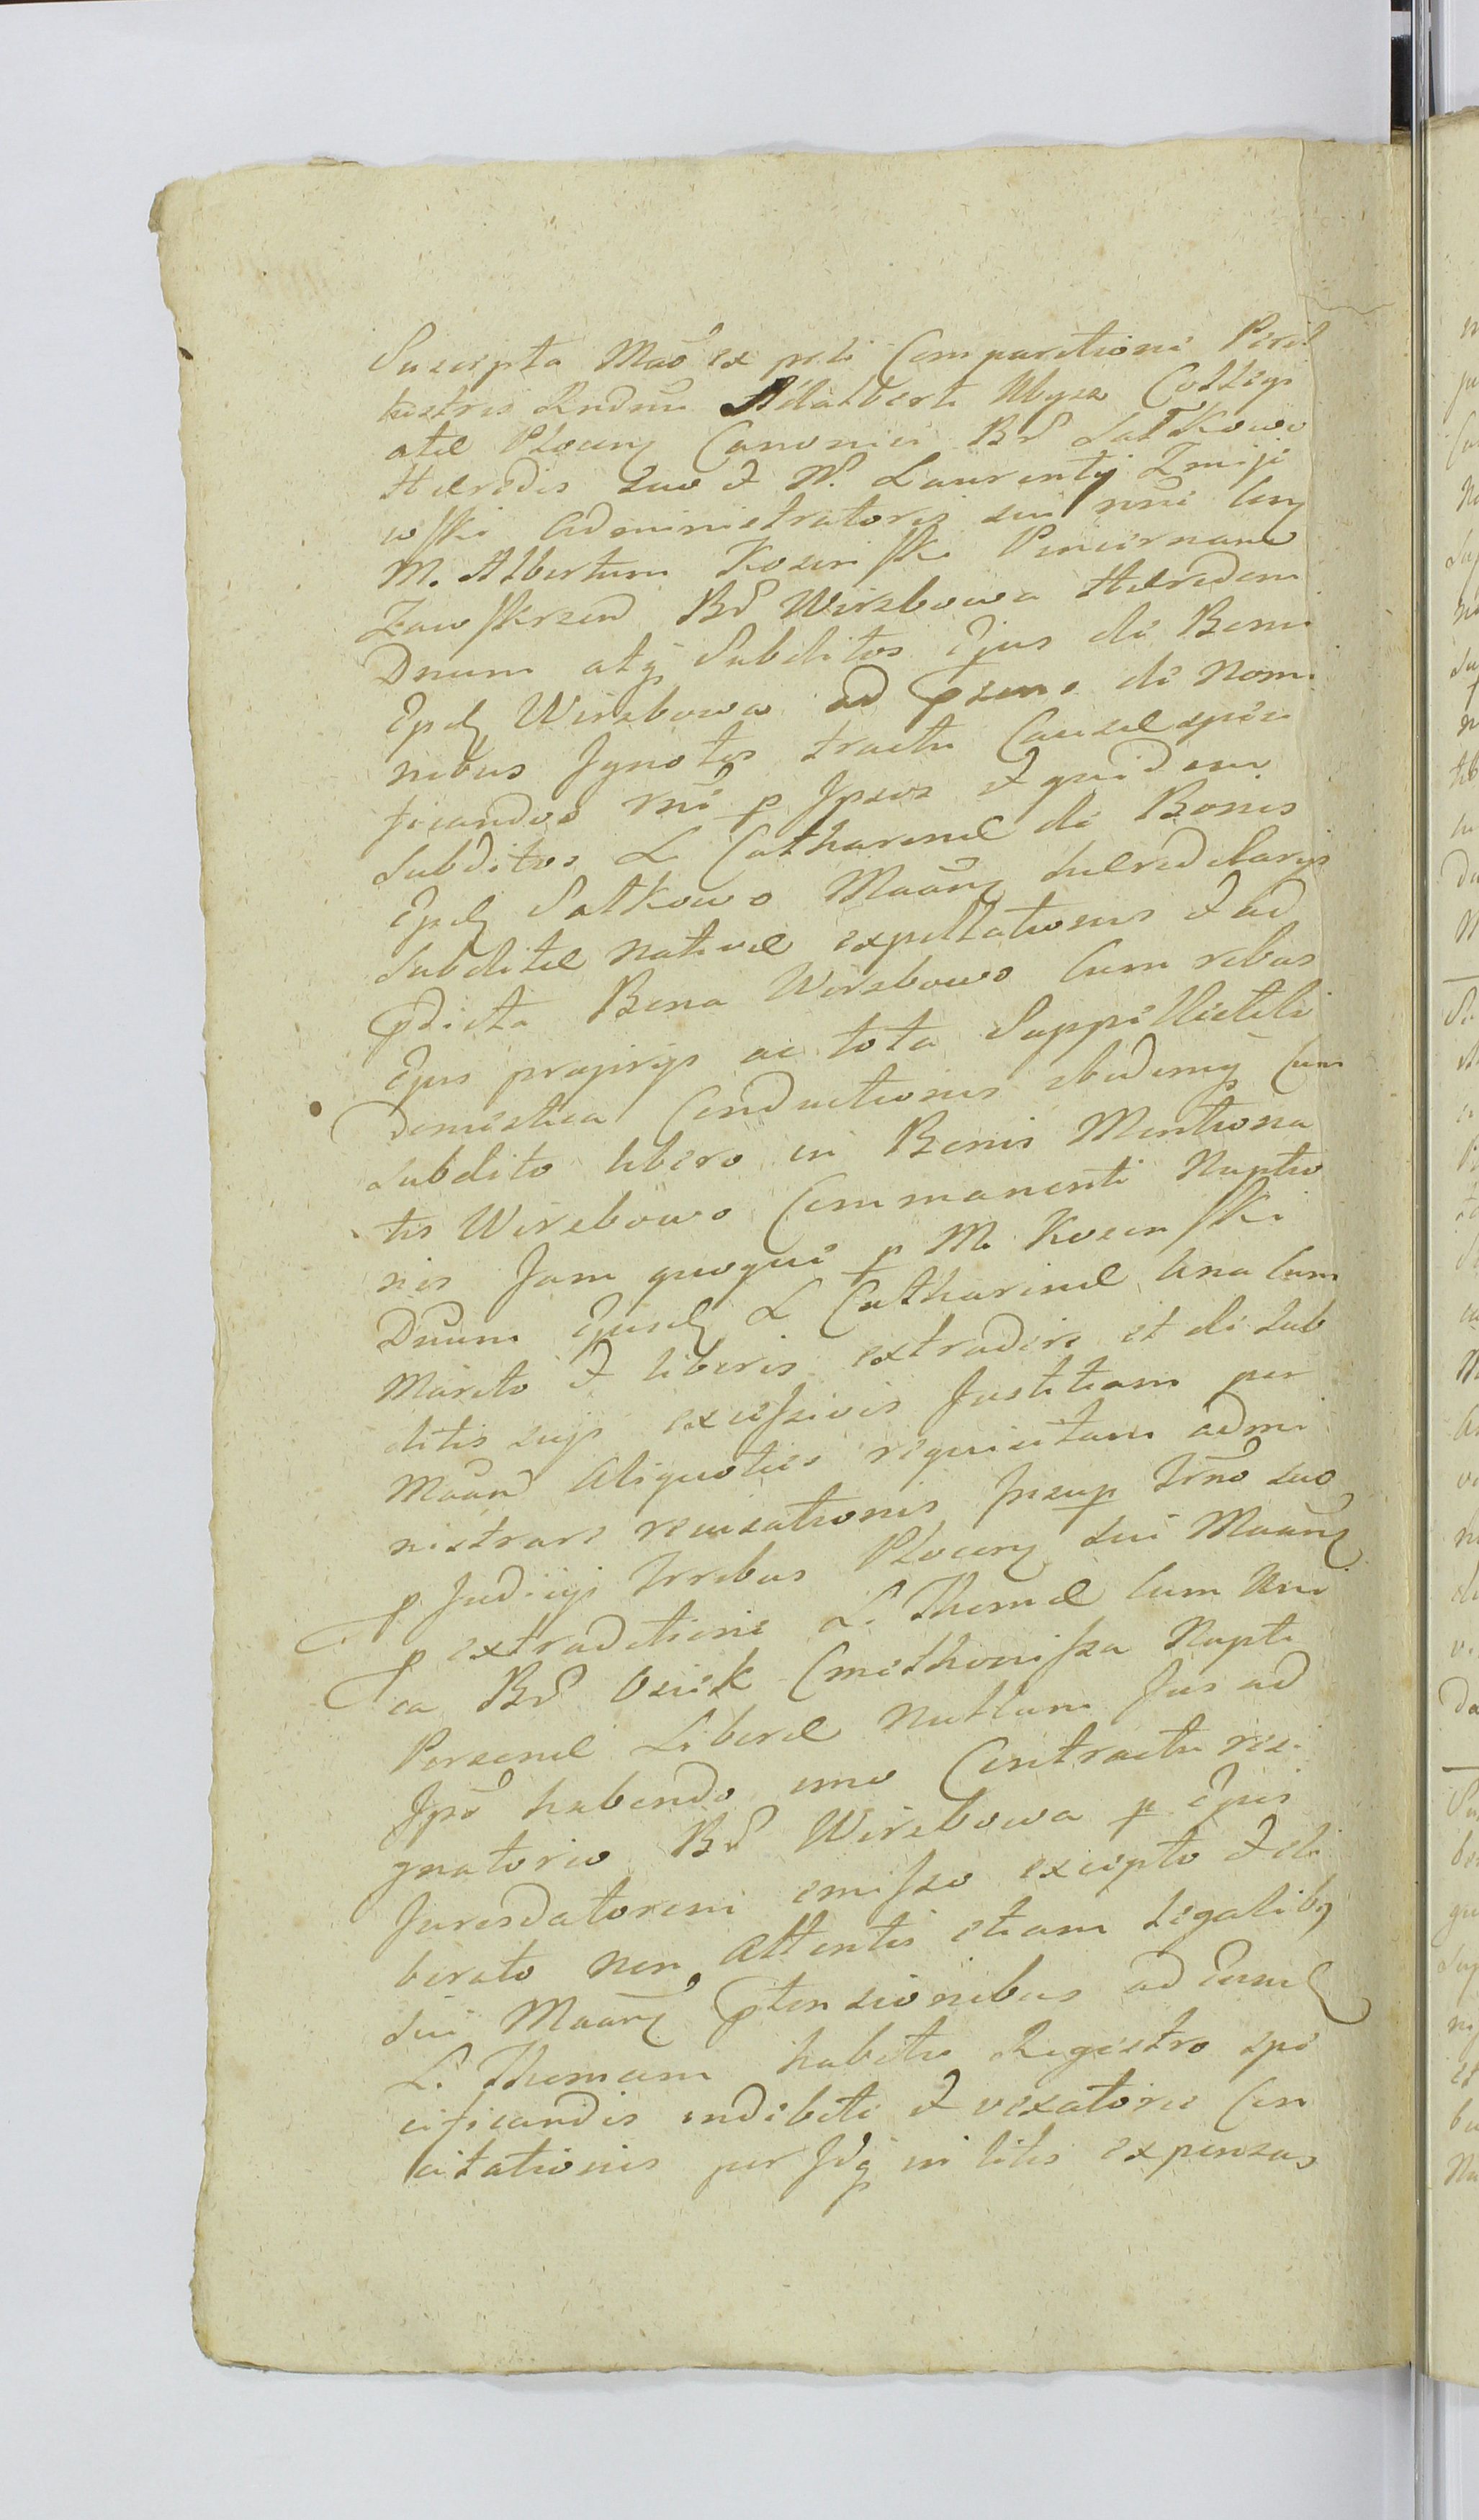 Suscepta Mao ex prli Comparitione Peril
lustris Rndmi Adalberti Mysz Collegi
atae Plocen Canonici Br Satkowo
Haeredis suo et N. Laurentij Zmije
wski Administratoris sui nni Cum
M. Albertum Koseinski Pincernam
Zawskrzen Br Wirzbowa Haeredem
Dnum atq Subditos Ejus de Bonis
Epd Wirzbowa ad psens de Nomi
nibus Ignotos tractu Causae speci
ficandos rne p Ipsos et quidem
Subditos L Catharinae de Bonis
Epd Satkowo Maanq haereditarys
Subditae nativae expellationis et ad
pdicta Bona Wirzbowo Cum rebus
Ejus proprijs ac tota Suppillectili
Domestica Conductionis ibidemq Cum
subdito libero in Bonis Mentiona
tis Wirzbowo Commanenti Nuptio
nis Jam quoque p M. Koseinski
Dnum Ejusd L Catharinae una Cum
Marito et liberis extradere et de Sub
ditis suis excessivis Justitiam per
Maand Aliquoties requisitam admi
nistrare recusationis Insup Trno suo
p Judicijs Trribus Plocen sui Maanq
p extraditione L. Thomae Cum Uni
ca Br Osiek Cmethonissa Nupti
Personae Liberae nullum Jus ad
Ipso habendo imo Contractu resi
gnatorio Br Wirzbowa p Ejus
Juresdatorem emisso excepto et li
berato non attentis etiam Legalibq
sui Maanq ptensionibus ad Eund
L. Thomam habitis Registro spe
cificandis indebite et vexatorie Con
citationis per Idq in litis expensas